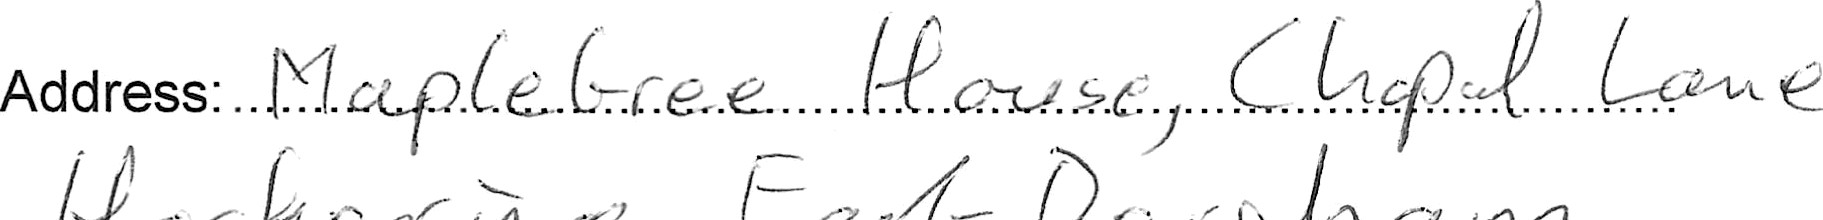 Address: Mapletree House, Chapel Lane
East Dereham